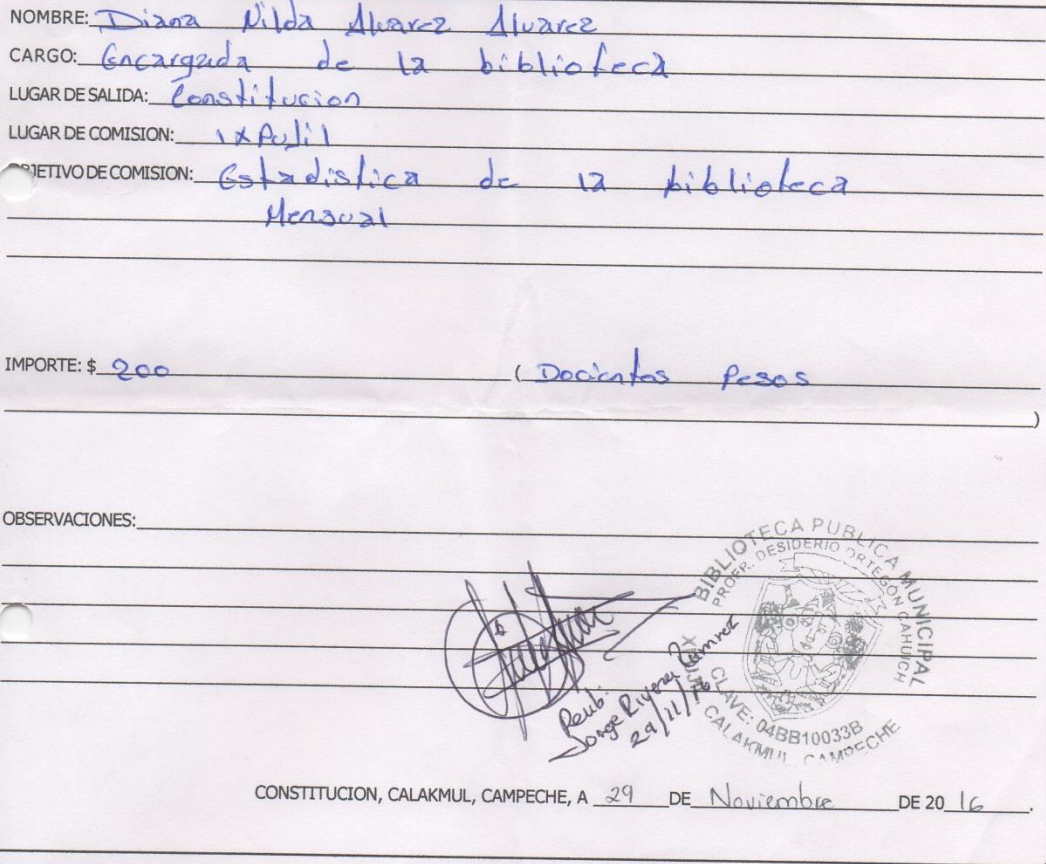 NOMBRE: Diana Nilda Alvarez Alvarez
CARGO: Encargada de la biblioteca
LUGAR DE SALIDA: Constitucion
LUGAR DE COMISION: Ixpujil
OBJETIVO DE COMISION: Estadistica de la biblioteca
Mensual
IMPORTE: $ 200 ( Docientos Pesos
)
OBSERVACIONES:
BIBLIOTECA PUBLICA MUNICIPAL
PROFR. DESIDERIO ORTEGON CAHUICH
CLAVE: 04BB10033B
CALAKMUL CAMPECHE
Jorge Rivera
29/11/16
CONSTITUCION, CALAKMUL, CAMPECHE, A 29 DE Noviembre DE 20 16.